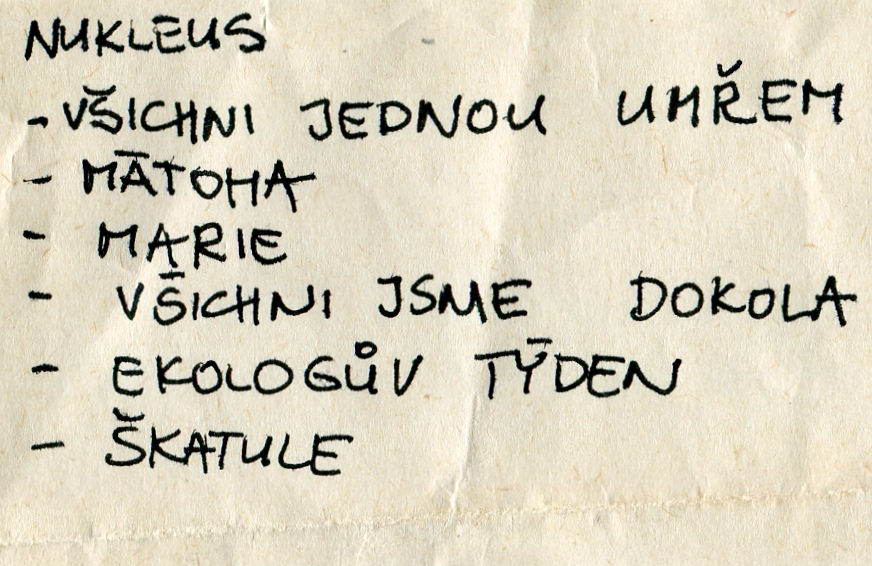 NUKLEUS
- VŠICHNI JEDNOU UMŘEM
- MÁTOHA
- MARIE
- VŠICHNI JSME DOKOLA
- EKOLOGŮV TÝDEN
- ŠKATULE